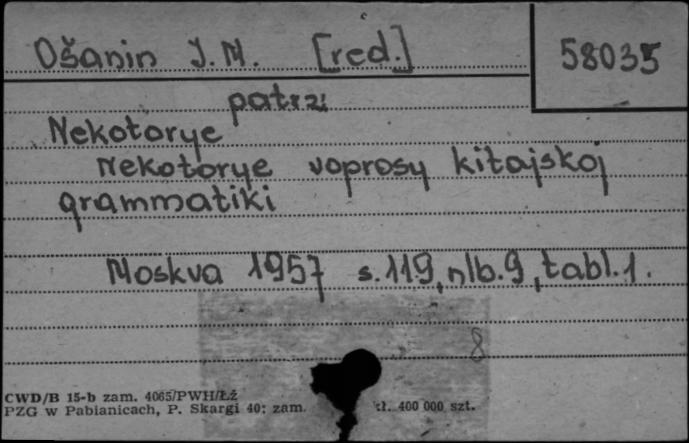 Ošanin J. M. [red.] 58035
patrz:
Nekotorye
Nekotorye voprosy kitajskoj
grammatiki
Moskva 1957 s.119, nlb.9, tabl.1.
8
CWD/B 15-b zam. 4065/PWH/Łź
PZG w Pabianicach, P. Skargi 40; zam. ił. 400 000 szt.